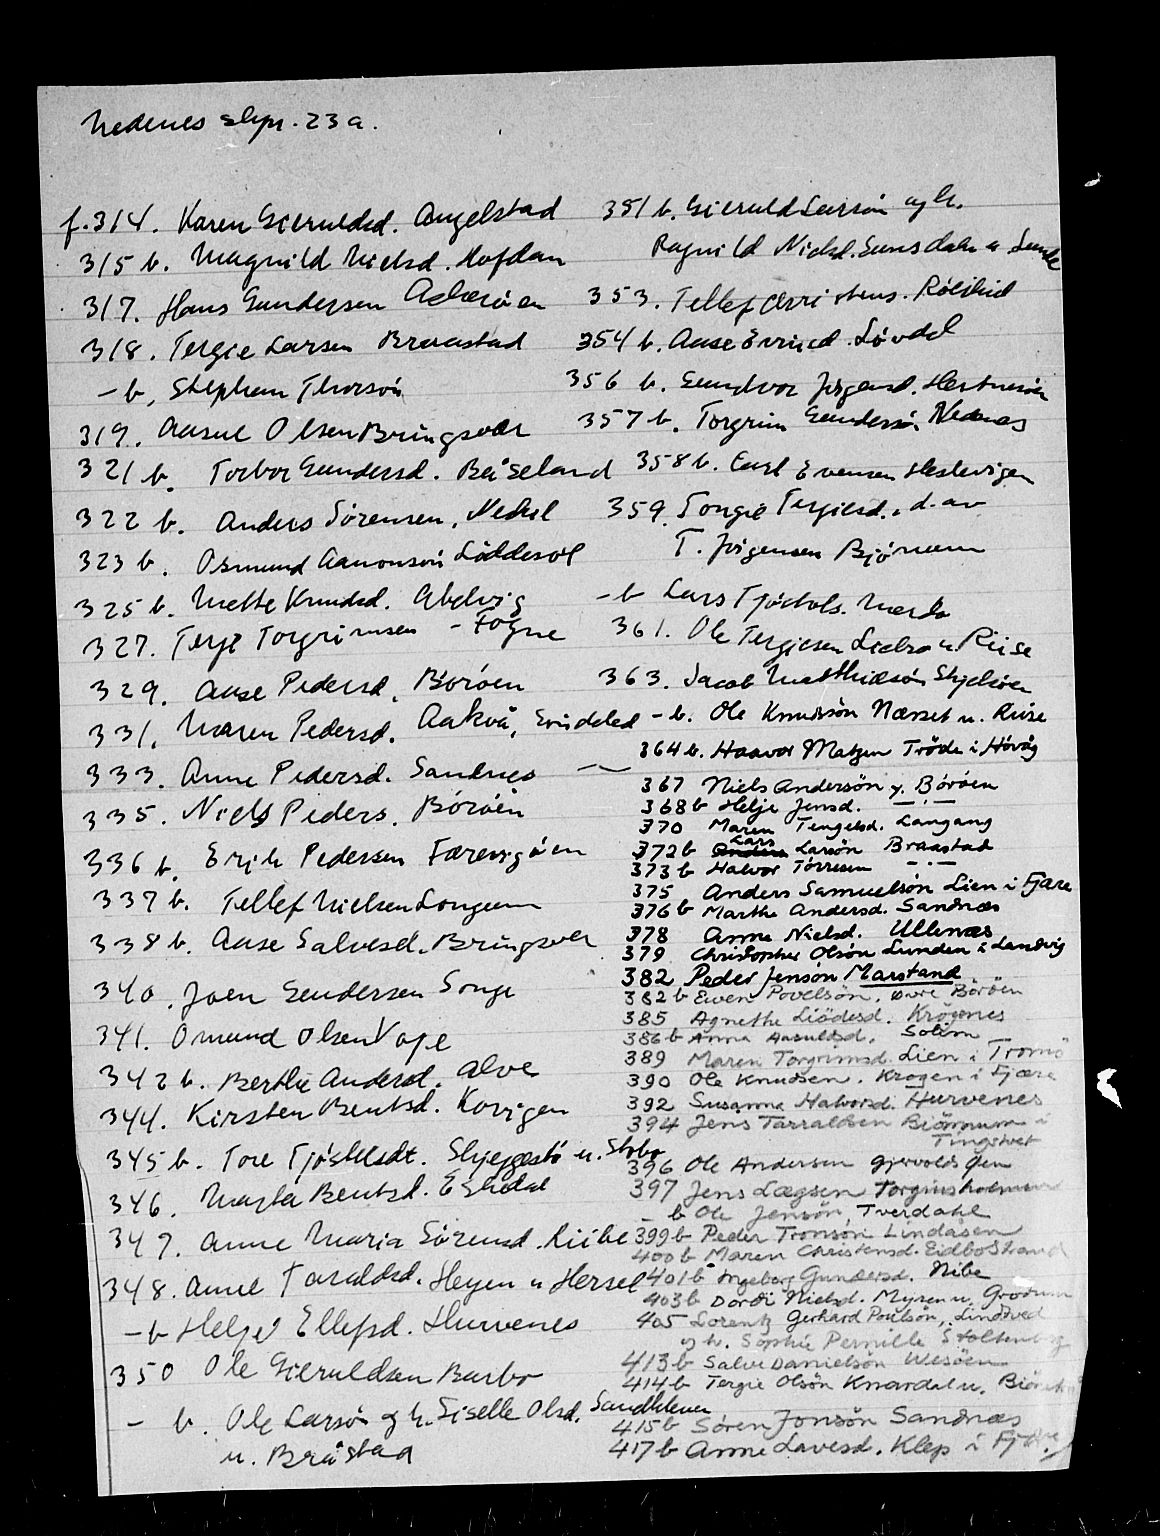 Nedenes skpr. 23a.
f.314. Karen Gieruldsd. Angelstad
315 b. Magnild Nielsd. Hofdan
317. Hans Gundersen
318. Tergie Larsen Braastad
- b, Stephan Thorsön
319. Aasul Olsen Bringsvær
321 b. Torbor Gundersd. Beiseland
322 b. Anders Sörensen, Nedel
323 b. Osmund Aanonsön Löddesöl
325 b. Mette Knudsd.
327. Terje Torgrimsen - Fogne
329. Aase Pedersd. Boröen
331. Maren Pedersd. Aakvå,
333. Anne Pedersd. Sandnes
335. Niels Peders. Boröen
336 b. Erik Pedersen Færevigöen
337 b. Tellef Nielsen Longum
338 b. Aase Salvesd. Bringsvær
340. Joen Gundersen Songe
341. Omund Olsen Vage
342 b. Berthe Andersd. Alve
344. Kirsten Bentsd. Kovigen
345 b. Tore Tjöstelsdt. Skjeggestö u. Stobo
346. Marta Bentsd. Eskedal
347. Anne Maria Sörensd. Kiibe
348. Anne Taraldsd. Heyen u Hersel
- b Helje Ellefsd. Hurvenes
350 Ole Gieruldsen Barbo
- b. Ole Larsön og h. Siselle Olsd. Sandkleven
u. Bråstad
351 b. Gieruld Larsön og h.
Ragnild Nielsd. Gunsdalen u Lunde
353. Tellef Christens. Rölihid
354 b. Aase Evrind. Lövdal
356 b. Gundvor Jörgensd. Hestnesön
357 b. Torgrim Gundersön Nednes
358 b. Carl Evensen Hestevigen
359. Tongie Tergiesd., d. av
T. Jörgensen Bjönum
- b Lars Tjöstols. Mærdo
361. Ole Tergiesen u. Riise
363. Jacob Matthiæsön Skjelsöen
- b. Ole Knudsön Næset u. Riise
364 b. Haavor Matzen Tröde i Hövåg
367 Niels Andersön y. Böröen
368 b Helje Jensd. — " —
370 Maren Tengelsd. Langang
372 b Lars Larsön Braastad
373 b Halvor Törresen — " —
375 Anders Samuelsön Lien i Fjære
376 b Marthe Andersd. Sandnæs
378 Anna Nielsd. Ullenæs
379 Christopher Olsön Lunden i Landvig
382 Peder Jensön Marstand
382 b Even Povelsön, øvre Böröen
385 Agnethe Liödesd. Krögenes
386 b Anna Aasuldsd. Solim
389 Maren Torgrimsd. Lien i Tromö
390 Ole Knudsen. Krogen i Fjære
392 Susanna Halvorsd. Hurvenes
394 Jens Tarraldsen Biönnum i
Tingstvet
396 Ole Andersen Gjervoldsöen
397 Jens Lægsen Torginsholmen
- b Ole Jensön, Tverdahl
399 b Peder Tronsön Lindåsen
400 b Maren Christensd. Eidbostrand
401 b Ingeborg Gundersd. Nibe
403 b Dordi Nielsd. Myren u, Groosum
405 Lorentz Gerhard Poulsön, Lindtved
og h. Sophie Pernille Stoltenberg
413 b Salve Danielsön Wesöen
414 b Tergie Olsön Knardal u.
415 b Sören Jonsön Sandnæs
417 b Anne Lavesd. Klep i Fjære